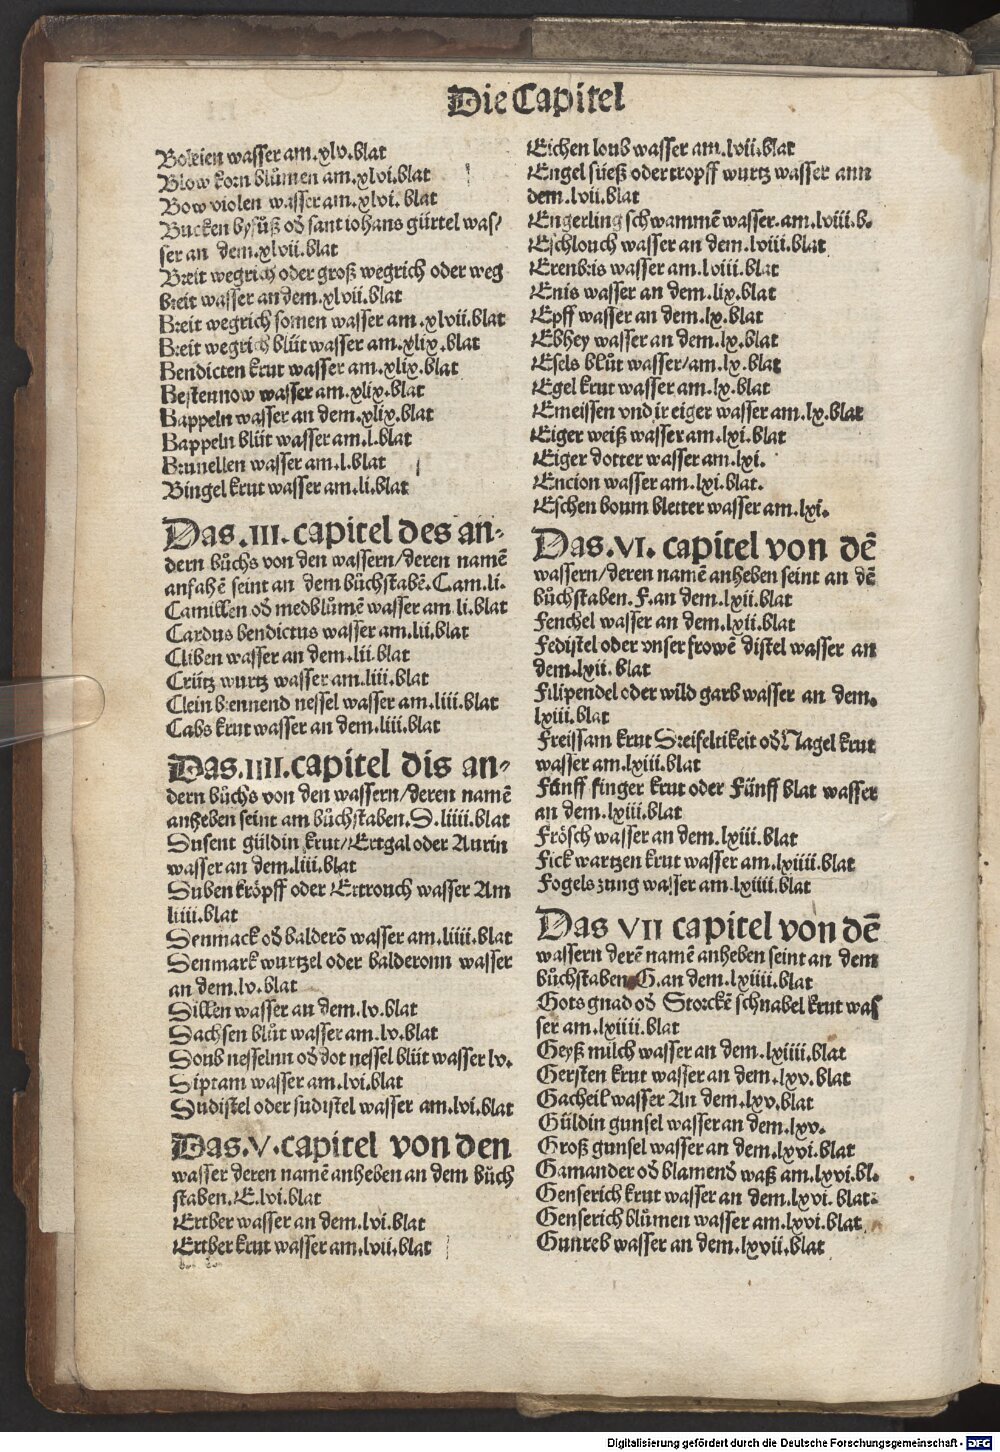 Die Capitel
Boleien wasser am.xlv.blat
Blow korn blůmen am.xlvi.blat
Bow violen wasser am.xlvi. blat
Bucken byfůß od̄ sant iohans gürtel was⸗
ser an dem.xlvii.blat
Breit wegrich oder groß wegrich oder weg
breit wasser an dem.xlvii.blat
Breit wegrich somen wasser am.xlvii.blat
Breit wegrich blüt wasser am.xlix.blat
Bendicten krut wasser am.xlix.blat
Bestennow wasser am.xlix.blat
Bappeln wasser an dem.xlix.blat
Bappeln blüt wasser am.l.blat
Brunellen wasser am.l.blat
Bingel krut wasser am.li.blat
Das.III.capitel des an⸗
dern bůchs von den wassern/deren namē
anfahē seint an dem bůchstabē.C.am.li.
Camillen od̄ medblůmē wasser am li.blat
Cardus bendictus wasser am.lii.blat
Cliben wasser an dem.lii.blat
Crütz wurtz wasser am.liii.blat
Clein brennend nessel wasser am.liii.blat
Cabs krut wasser an dem.liii.blat
Das.IIII.capitel dis an⸗
dern bůchs von den wassern/deren namē
anheben seint am bůchstaben.D.liiii.blat
Dusent güldin krut/Ertgal oder Aurin
wasser an dem.liii.blat
Duben kröpff oder Ertrouch wasser Am
liiii.blat
Denmack od̄ balderō wasser am.liiii.blat
Denmark wurtzel oder balderonn wasser
an dem.lv.blat
Dillen wasser an dem.lv.blat
Dachsen blůt wasser am.lv.blat
Doub nesselnn od̄ dot nessel blüt wasser lv.
Diptam wasser am.lvi.blat
Dudistel oder sudistel wasser am.lvi.blat
Das.V.capitel von den
wasser deren namē anheben an dem bůch
staben.E.lvi.blat
Ertber wasser an dem.lvi.blat
Ertber krut wasser am.lvii.blat
Eichen loub wasser am.lvii.blat
Engel süeß oder tropff wurtz wasser ann
dem.lvii.blat
Engerling schwammē wasser.am.lviii.b.
Eschlouch wasser an dem.lviii.blat
Erenbris wasser am.lviii.blat
Enis wasser an dem.lix.blat
Epff wasser an dem.lx.blat
Ebhey wasser an dem.lx.blat
Esels blůt wasser/am.lx.blat
Egel krut wasser am.lx.blat
Emeissen vnd ir eiger wasser am.lx.blat
Eiger weiß wasser am.lxi.blat
Eiger dotter wasser am.lxi.
Encion wasser am.lxi.blat.
Eschen boum bletter wasser am.lxi.
Das.VI. capitel von dē
wassern/deren namē anheben seint an dē
bůchstaben.F.an dem.lxii.blat
Fenchel wasser an dem.lxii.blat
Fedistel oder vnser frowē distel wasser an
dem.lxii.blat
Filipendel oder wild garb wasser an dem.
lxiii.blat
Freissam krut Dreifeltikeit od̄ Nagel krut
wasser am.lxiii.blat
Fünff finger krut oder Fünff blat wasser
an dem.lxiii.blat
Frösch wasser an dem.lxiii.blat
Fick wartzen krut wasser am.lxiiii.blat
Fogels zung wasser am.lxiiii.blat
Das VII capitel von dē
wassern derē namē anheben seint an dem
bůchstaben G.an dem.lxiiii.blat
Gots gnad od̄ Storckē schnabel krut was
ser am.lxiiii.blat
Geyß milch wasser an dem.lxiiii.blat
Gersten krut wasser an dem.lxv.blat
Gacheil wasser An dem.lxv.blat
Güldin gunsel wasser an dem.lxv.
Groß gunsel wasser an dem.lxvi.blat
Gamander od̄ blamend̄ waß am.lxvi.bl.
Genserich krut wasser an dem.lxvi. blat.
Genserich blůmen wasser am.lxvi.blat
Gunreb wasser an dem.lxvii.blat
Digitalisierung gefördert durch die Deutsche Forschungsgemeinschaft - DFG